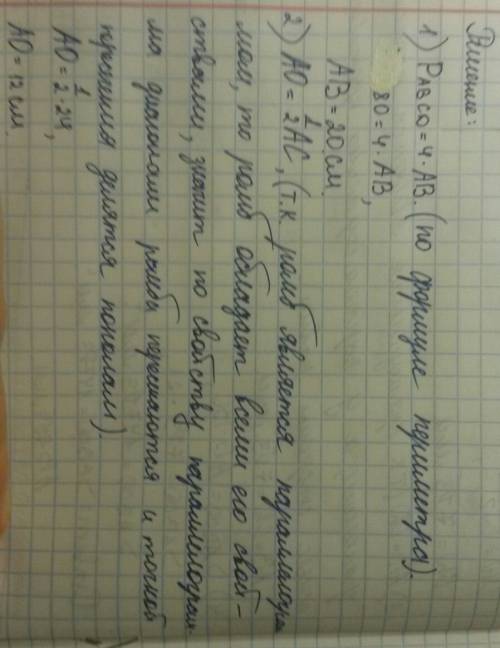 Решение:
1) PABCD = 4·AB. (по формуле периметра).
80 = 4·AB,
AB = 20 см.
2) AO = 1/2 AC, (т.к ромб является параллелограм
мом, то ромб обладает всеми его свой-
ствами, значит по свойству параллелограм
ма диагонали ромба пересекаются и точкой
пересечения делятся пополам).
AO = 1/2·24,
AO = 12 см.